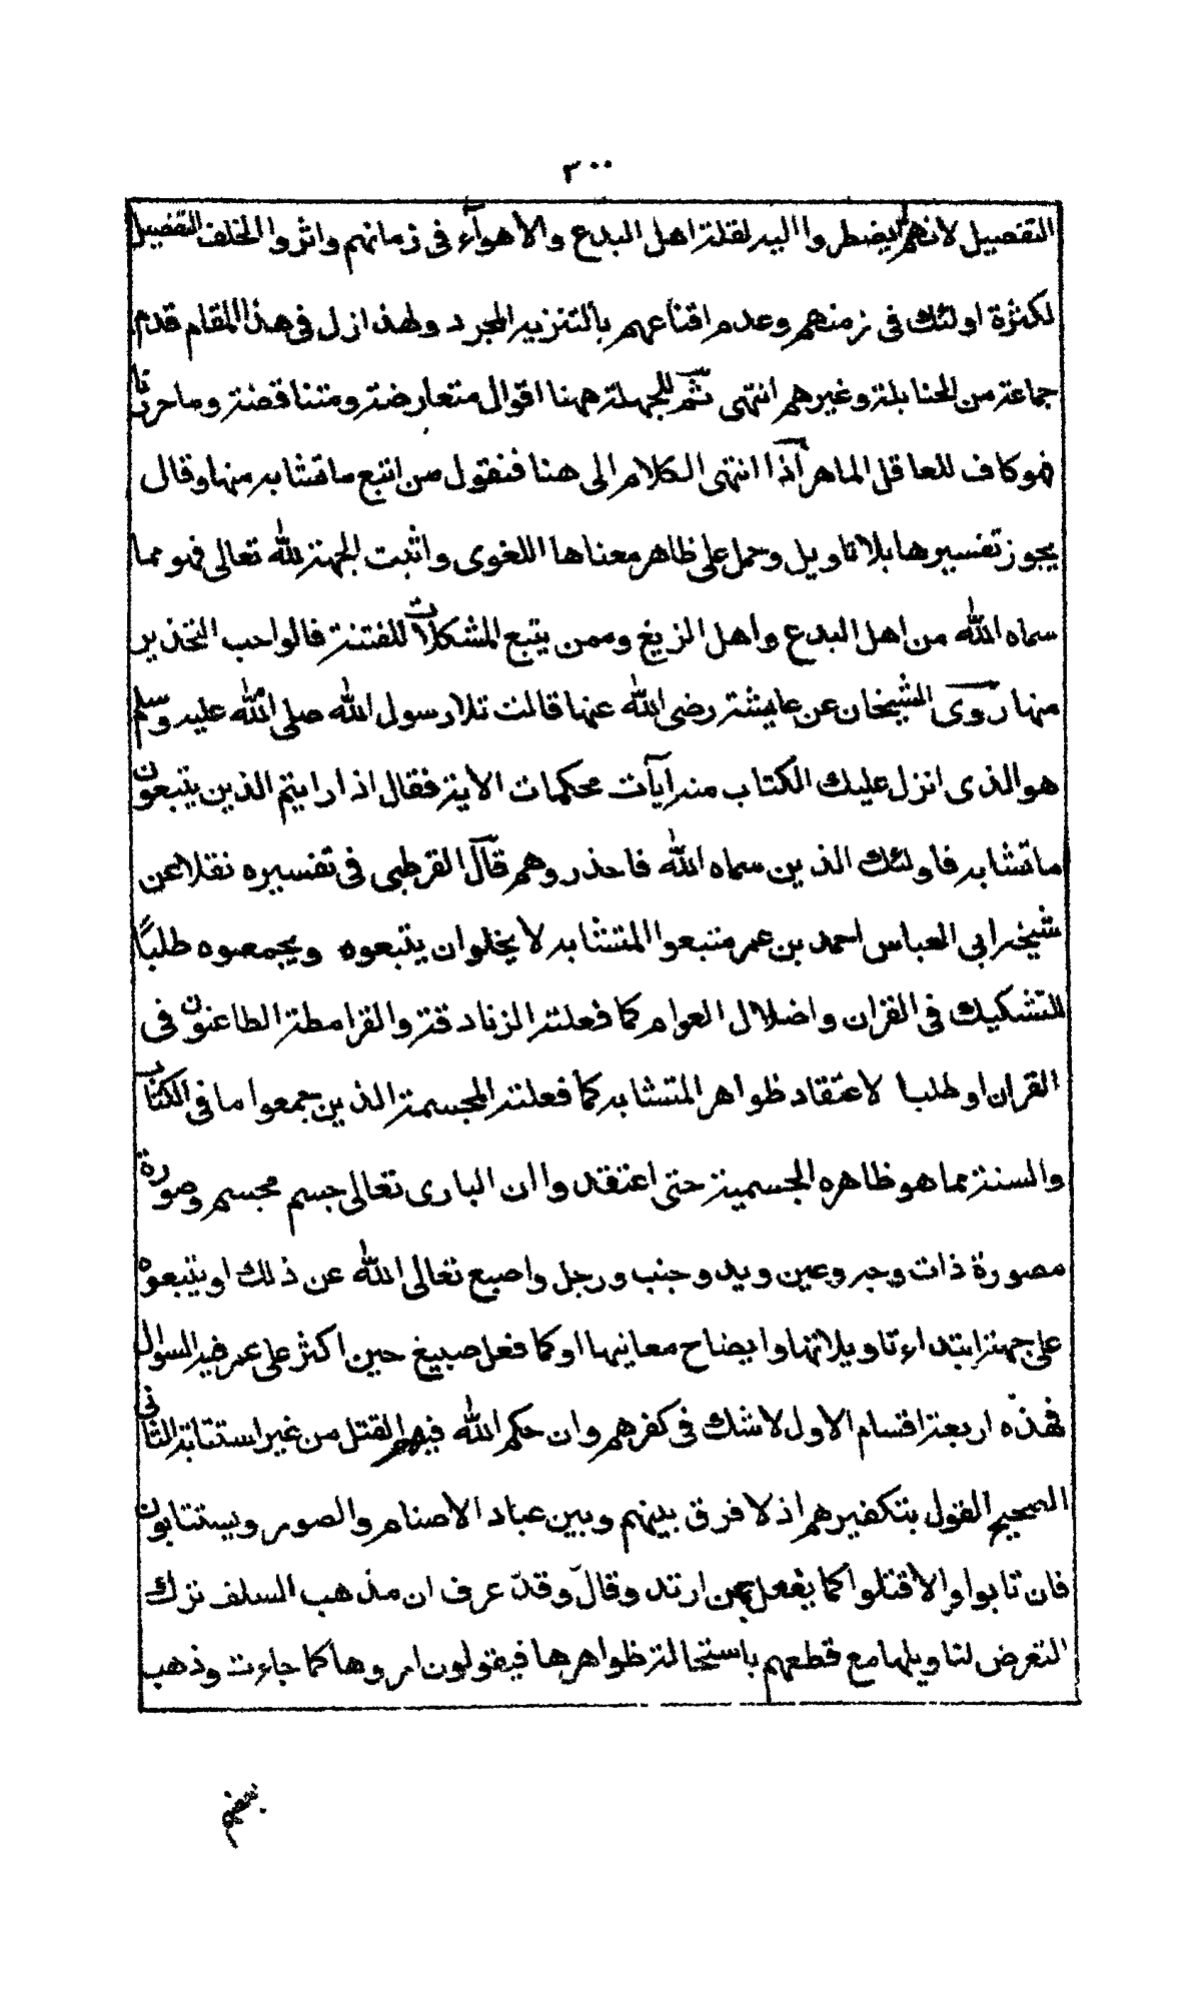 ٣٠٠
التفصيل لانهم لم يضطروا اليه لقلة اهل البدع والأهوآء فى زمانهم واثروا الخلف التفصيل
لكثرة اولئك فى زمنهم وعدم اقناعهم بالتنزيه المجرد ولهذا زل فى هذا المقام قدم
جماعة من الحنابلة وغيرهم انتهى ثم للجهلة ههنا اقوال متعارضة ومتناقضة وما حررنا
فهو كاف للعاقل الماهر اذا انتهى الكلام الى هنا فنقول من اتبع ما تشابه منها وقال
يجوز تفسيرها بلا تاويل وحمل على ظاهر معناها اللغوى واثبت الجهة لله تعالى فهو مما
سماه الله من اهل البدع واهل الزيغ وممن يتبع المشكلات للفتنة فالواجب التحذير
منها روى الشيخان عن عايشة رضى الله عنها قالت تلا رسول الله صلى الله عليه وسلم
هو الذى انزل عليك الكتاب منه آيآت محكمات الاية فقال اذا رايتم الذين يتبعون
ما تشابه فاولئك الذين سماه الله فاحذروهم قال القرطبى فى تفسيره نقلا عن
شيخه ابى العباس احمد بن عمر متبعوا المتشابه لا يخلوان يتبعوه ويجمعوه طلبًا
للتشكيك فى القران واضلال العوام كما فعلته الزنادقة والقرامطة الطاعنون فى
القران او طلبا لاعتقاد ظواهر المتشابه كما فعلته المجسمة الذين جمعوا ما فى الكتاب
والسنة مما هو ظاهره الجسمية حتى اعتقدوا ان البارى تعالى جسم مجسم وصورة
مصورة ذات وجه وعين ويد وجنب ورجل واصبع تعالى الله عن ذلك او يتبعوه
على جهة ابتداء تاويلاتها وايضاح معانيها اوكما فعل صبيغ حين اكثر على عمر فيه السوال
فهذه اربعة اقسام الاول لاشك فى كفرهم وان حكم الله فيهم القتل من غير استتابة الثانى
الصحيح القول بتكفيرهم اذ لا فرق بينهم وبين عباد الاصنام والصور ويستتابون
فان تابوا والا قتلوا كما يفعل بمن ارتد وقال وقد عرف ان مذهب السلف ترك
التعرض لتاويلها مع قطعهم باستحالة ظواهرها فيقولون امروها كما جاءت وذهب
بعضهم